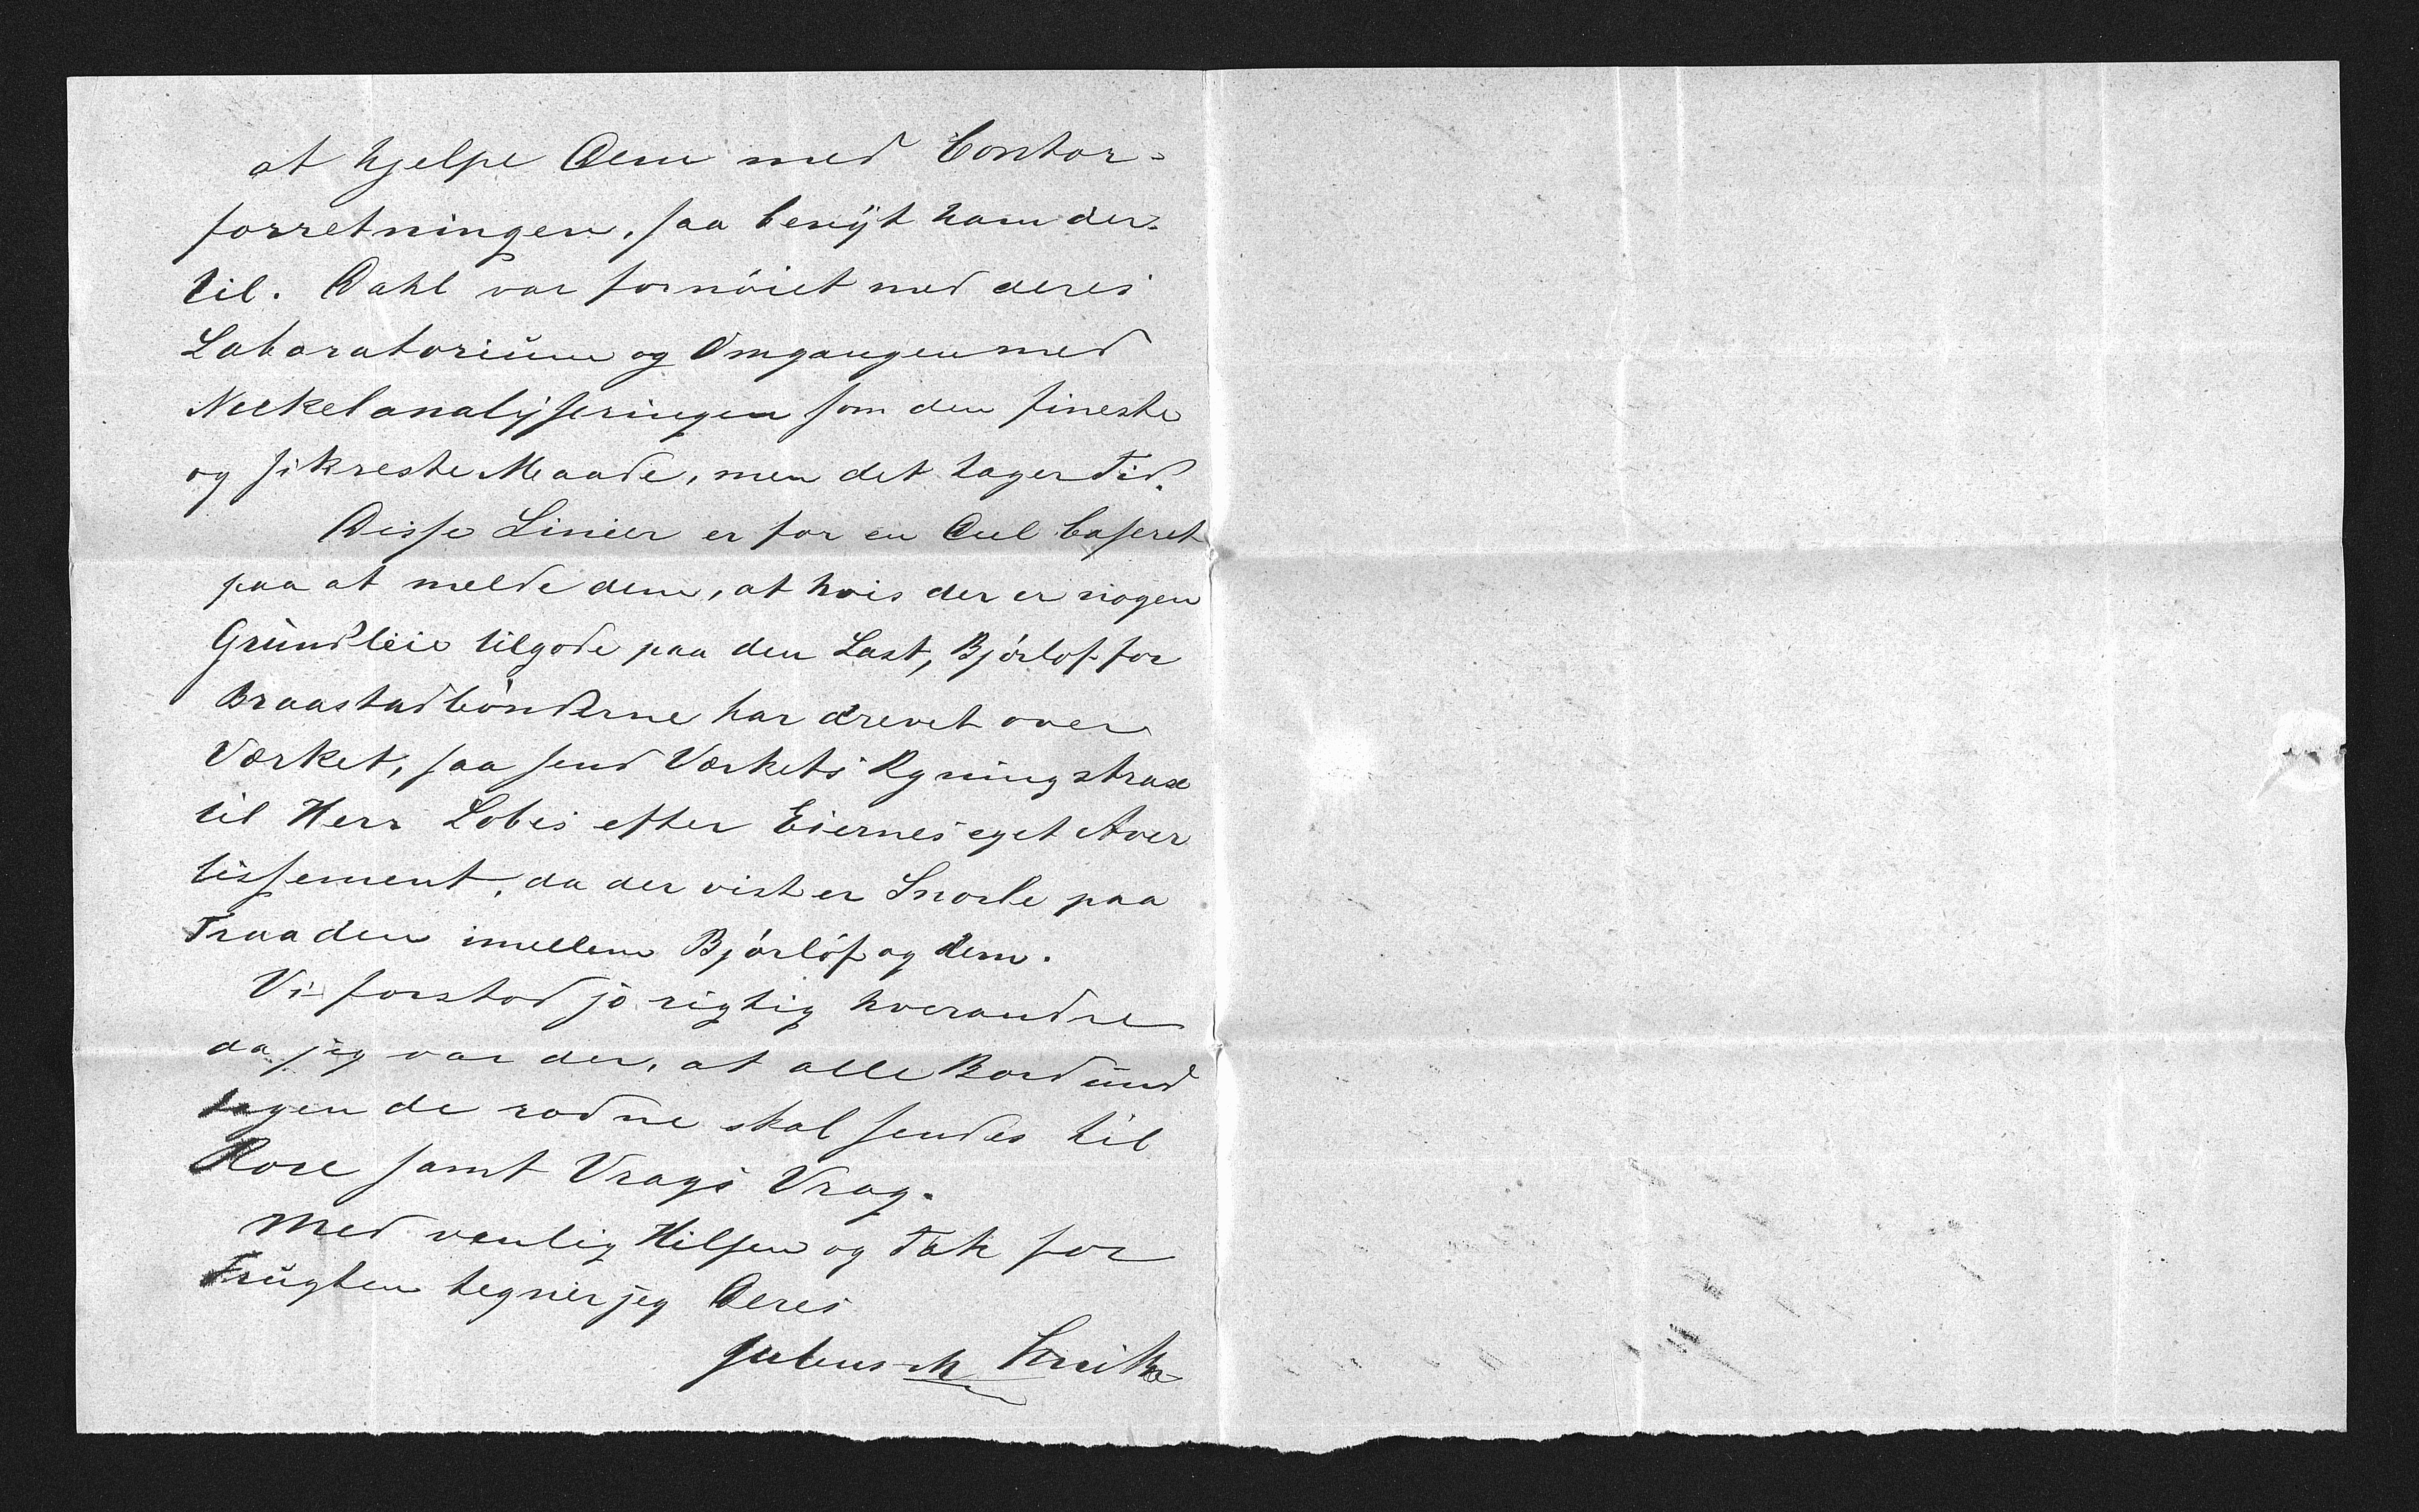 at hjelpe Dem med Contor-
forretningen, saa benyt ham der-
til. Dahl var fornöiet med deres
Laboratorium og Omgangen med
Nickelanalyseringen som den fineste
og sikreste Maade, men det tager Tid.
Disse Linier er for en Deel baseret
paa at melde dem, at hvis der er nogen
Grundleie tilgode paa den Last, Bjørlof for
Braastadbönderne har drevet over
Værket, saa send Værkets Regning strax
til Herr Lobes efter Eiernes eget Aver
tissement, da der vist er Snorle paa
Traaden imellem Bjørlöf og dem.
Vi forstod jo rigtig hverandre
da jeg var der, at alle Bord und
tagen de rodne skal sendes til
Rose samt Vrags Vrag.
Med venlig Hilsen og Tak for
Frugten tegner jeg Deres
Smith